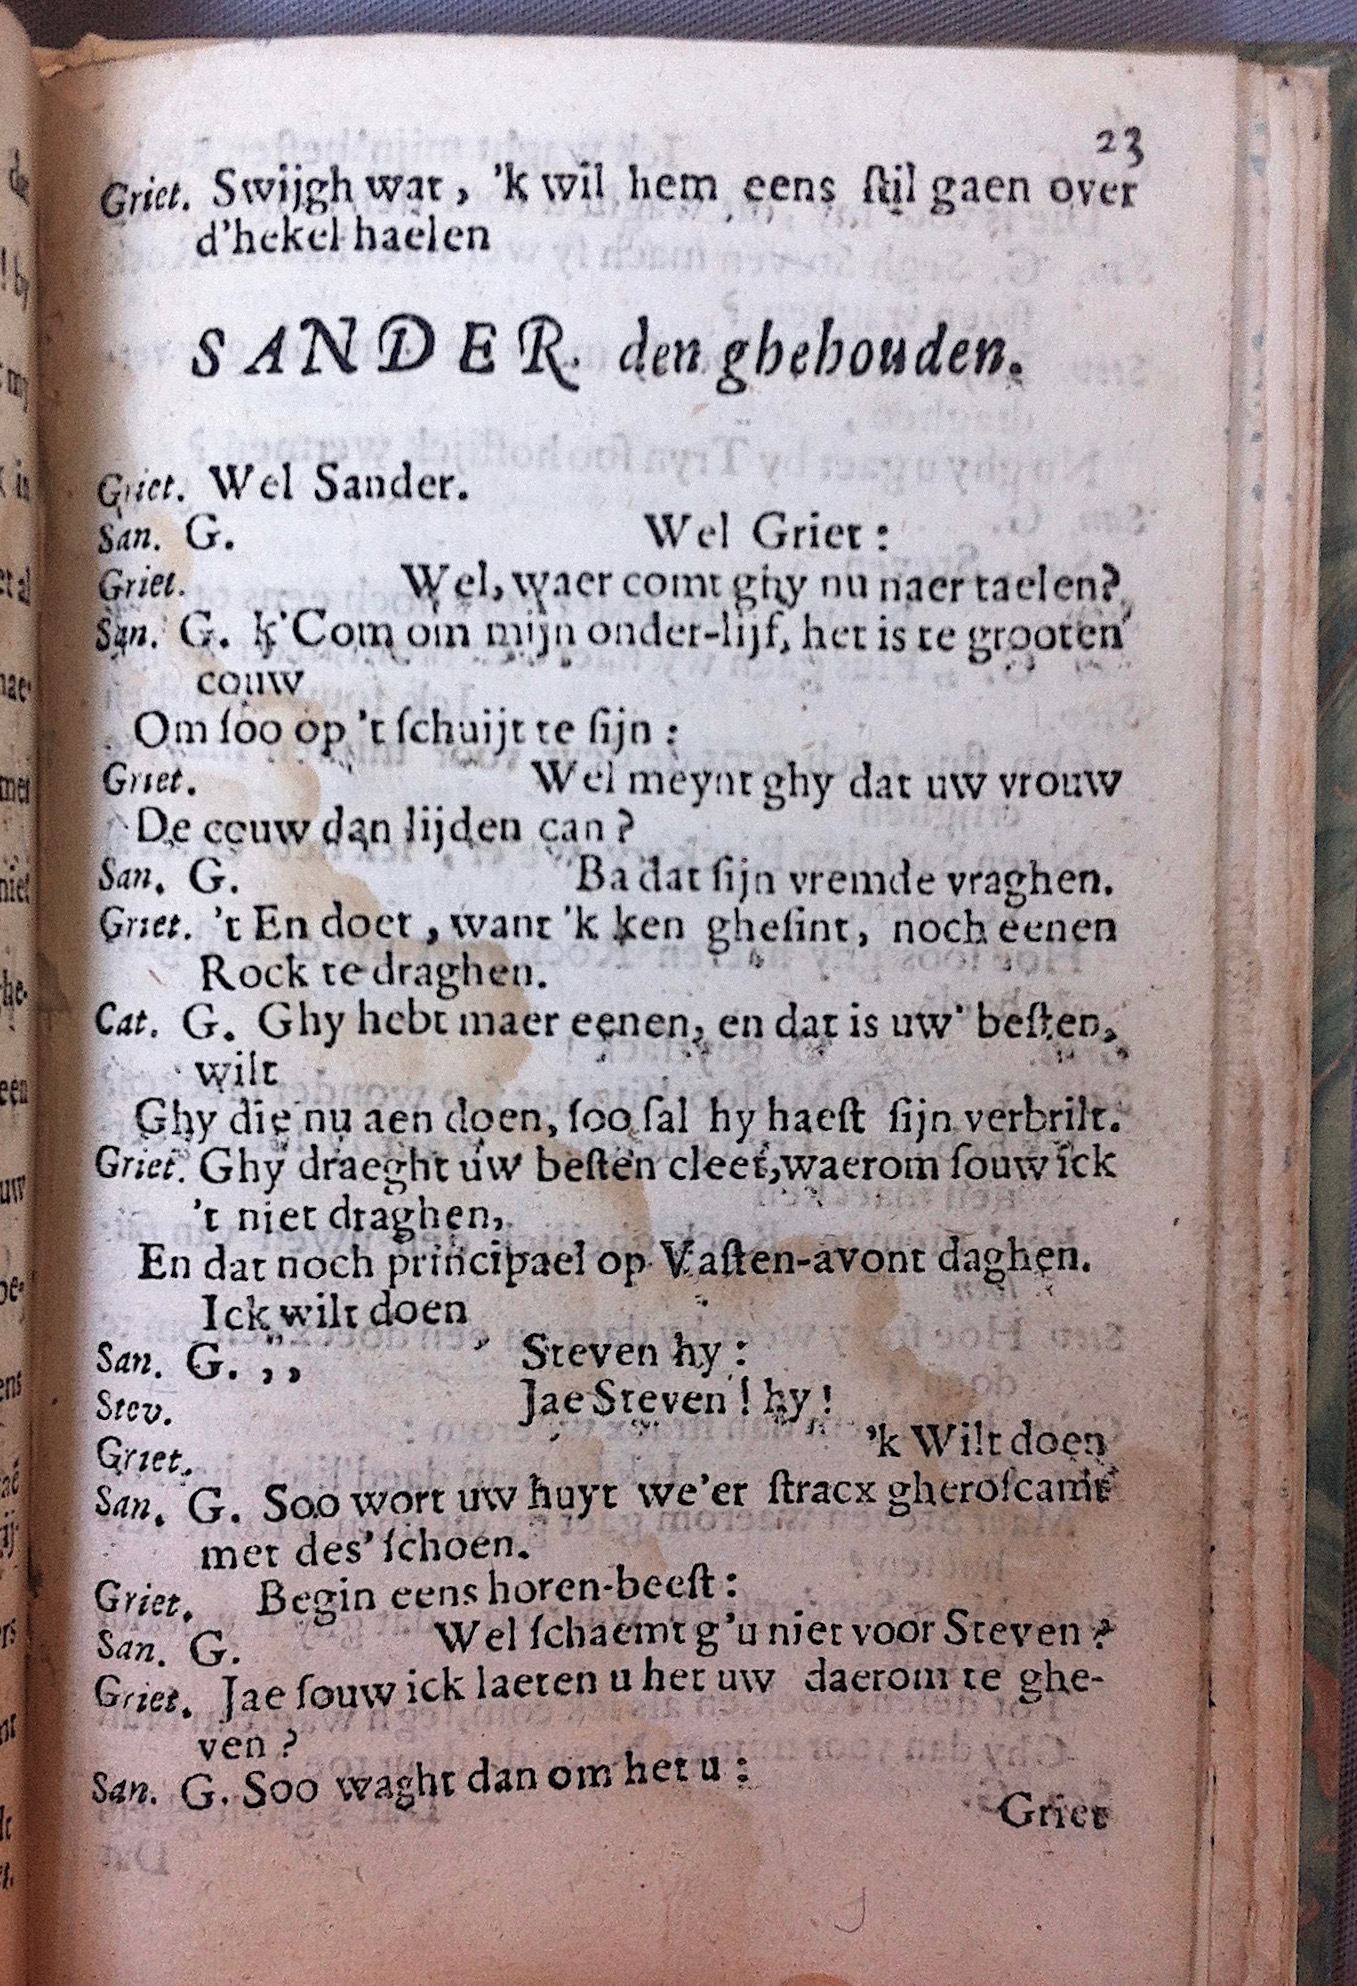 23
Griet. Swijgh wat, 'k wil hem eens ſtil gaen over
d'hekel haelen
SANDER den ghehouden.
Griet. Wel Sander.
San. G. Wel Griet:
Griet. Wel, waer comt ghy nu naer taelen?
San. G. k'Com om mijn onder-lijf, het is te grooten
couw
Om ſoo op 't ſchuijt te ſijn:
Griet. Wel meynt ghy dat uw vrouw
De couw dan lijden can?
San. G. Ba dat ſijn vremde vraghen.
Griet. 't En doet, want 'k ken gheſint, noch eenen
Rock te draghen.
Cat. G. Ghy hebt maer eenen, en dat is uw' beſten,
wilt
Ghy die nu aen doen, ſoo ſal hy haeſt ſijn verbrilt.
Griet. Ghy draeght uw beſten cleet, waerom ſouw ick
't niet draghen,
En dat noch principael op Vaſten-avont daghen.
Ick wilt doen
San. G. ,, Steven hy:
Stev. Jae Steven! hy!
Griet. 'k Wilt doen
San. G. Soo wort uw huyt we'er ſtracx gheroſcamt
met des' ſchoen.
Griet. Begin eens horen-beeſt:
San. G. Wel ſchaemt g'u niet voor Steven?
Griet. Jae ſouw ick laeten u het uw daerom te ghe-
ven?
San. G. Soo waght dan om het u:
Griet